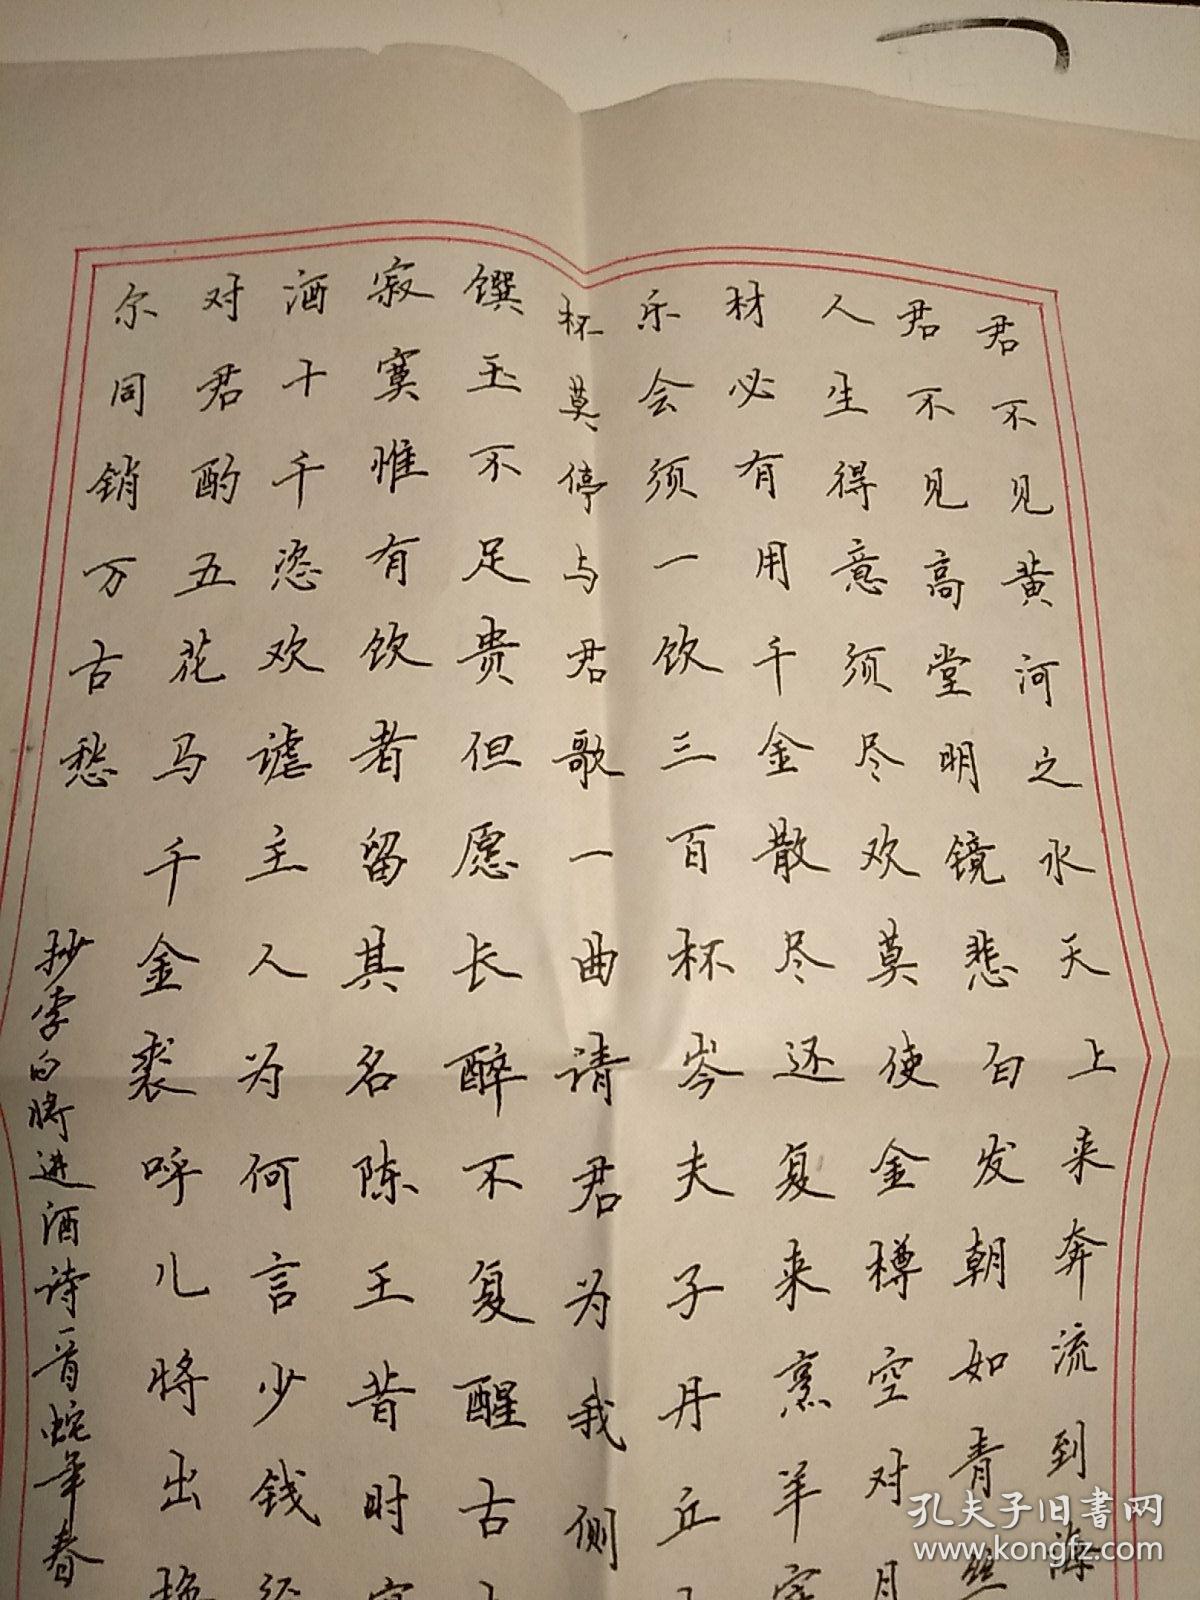 君不见黄河之水天上来奔流到海
君不见高堂明镜悲白发朝如青丝
人生得意须尽欢莫使金樽空对月
材必有用千金散尽还复来烹羊宰
乐会须一饮三百杯岑夫子丹丘
杯莫停与君歌一曲请君为我侧
馔玉不足贵但愿长醉不复醒古
寂寞惟有饮者留其名陈王昔时宴
酒十千恣欢谑主人为何言少钱径
对君酌五花马千金裘呼儿将出换
尔同销万古愁
抄李白将进酒诗一首蛇年春
孔夫子旧书网
www.kongfz.com